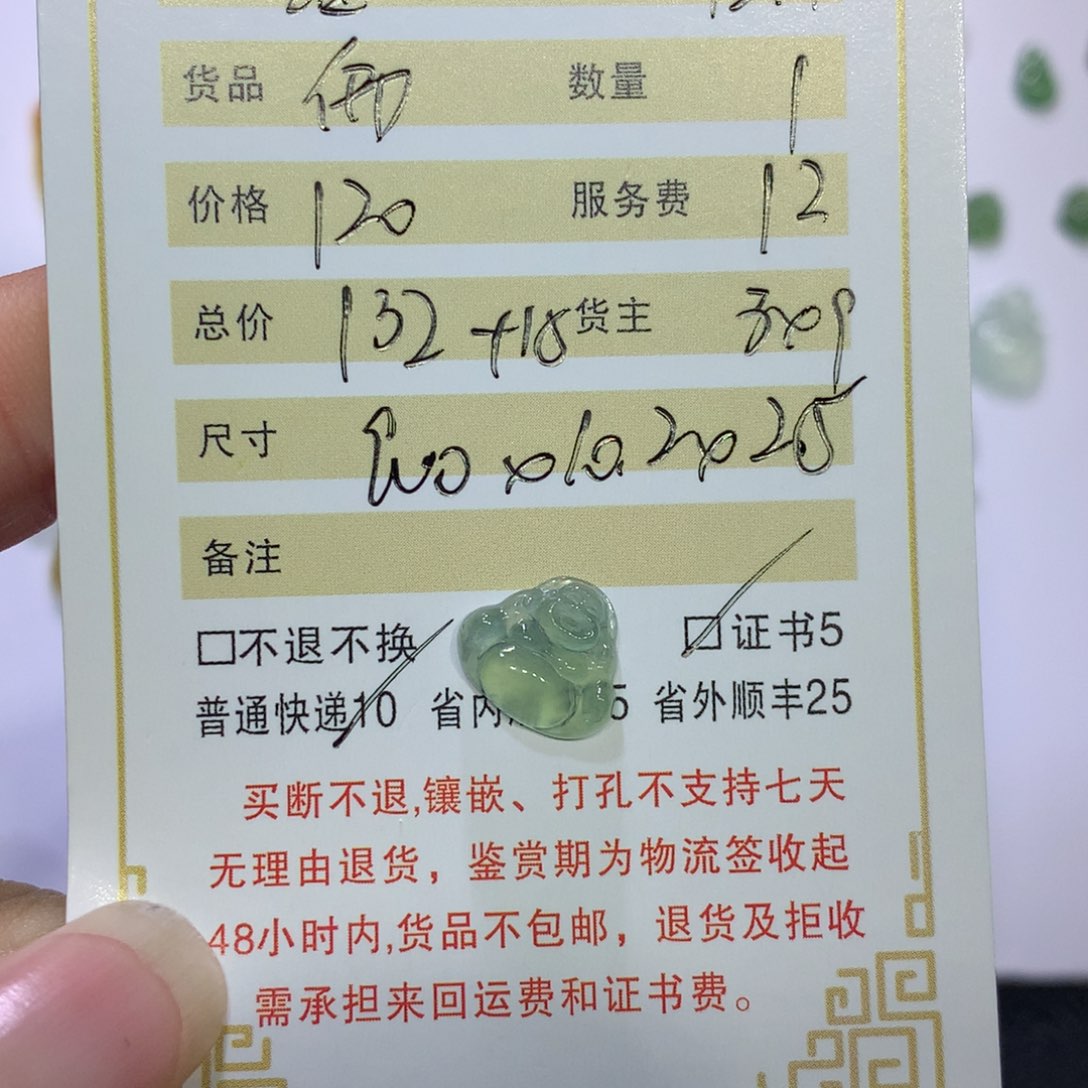 货品 佛 数量 1
价格 120 服务费 12
总价 132 +18 货主
尺寸 x10.2x2.5
备注
□不退不换 □证书5
普通快递10 省内 5 省外顺丰25
买断不退,镶嵌、打孔不支持七天
无理由退货，鉴赏期为物流签收起
48小时内,货品不包邮，退货及拒收
需承担来回运费和证书费。